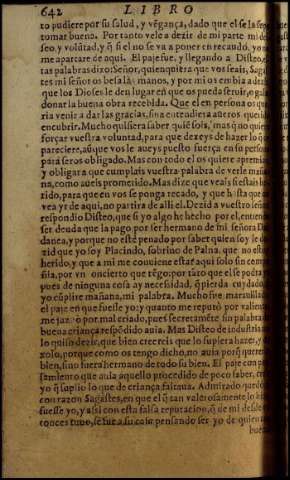 642 LIBRO
to pudiere por su salud, y vẽgança, dado que el se la
tomar buena. Por tanto vele a dezir de mi parte mi de
seo y volũtad, y q̃ si el no se va a poner en recaudo, yo
me apartare de aqui. El paje fue, y llegando a Disteo,
tas palabras dixo: Señor, quienquiera que vos seais, Sagis
tes mi señor os besa las manos, y por mi os embia a dezir
que los Dioses le den lugar en que os pueda seruir, o ga
donar la buena obra recebida. Que el en persona os que
ria venir a dar las gracias, sino entendiera aueros
encubrir. Mucho quisiera saber quiẽ sois, mas no quiere
forçar vuestra voluntad, para que dexeys de hazer lo que
pareciere, aũque vos le aueys puesto fuerça en su persona
para seros obligado. Mas con todo el os quiere apremiar
y obligar a que cumplais vuestra palabra de verle maña
na, como aueis prometido. Mas dize que veais si estais
rido, para que en vos se ponga recado, y que hasta que
vea yr de aqui, no partira de alli el. Dezid a vuestro señor
respondio Disteo, que si yo algo he hecho por el, entiendo
ser deuda que la pago por ser hermano de mi señora Di
danea, y porque no estè penado por saber quien soy le de
zid que yo soy Placindo, sobrino de Palna. que no estoy
herido, y que a mi me conuiene estar aqui solo sin compa
ñia, por vn concierto que tẽgo: por tãto que el se podra yr
pues de ninguna cosa ay necessidad, q̃ pierda cuydado,
yo cũplire mañana, mi palabra. Mucho fue marauillado
el paje en que fuesse yo: y quanto me reputò por valiente
me juzgò por mal criado, pues secretamẽte sin palabra
buena criança respõdido auia. Mas Disteo de industria no
lo quiso dezir, que bien creereis que lo supiera hazer, y
xolo, porque como os tengo dicho, no auia porq̃ querer
bien, sino fuera hermano de todo su bien. El paje con pen
samiento que auia aquello procedido de poco saber,
yo q̃ suplio lo que de criança faltaua. Admirado quedò
con razon Sagistes, en que el q̃ tan valerosamente lo hizo
fuesse yo, y assi con esta falsa reputacion, q̃ de mi desde en
tonces tuuo, se fue a su casa pensando ser yo de quien
buena